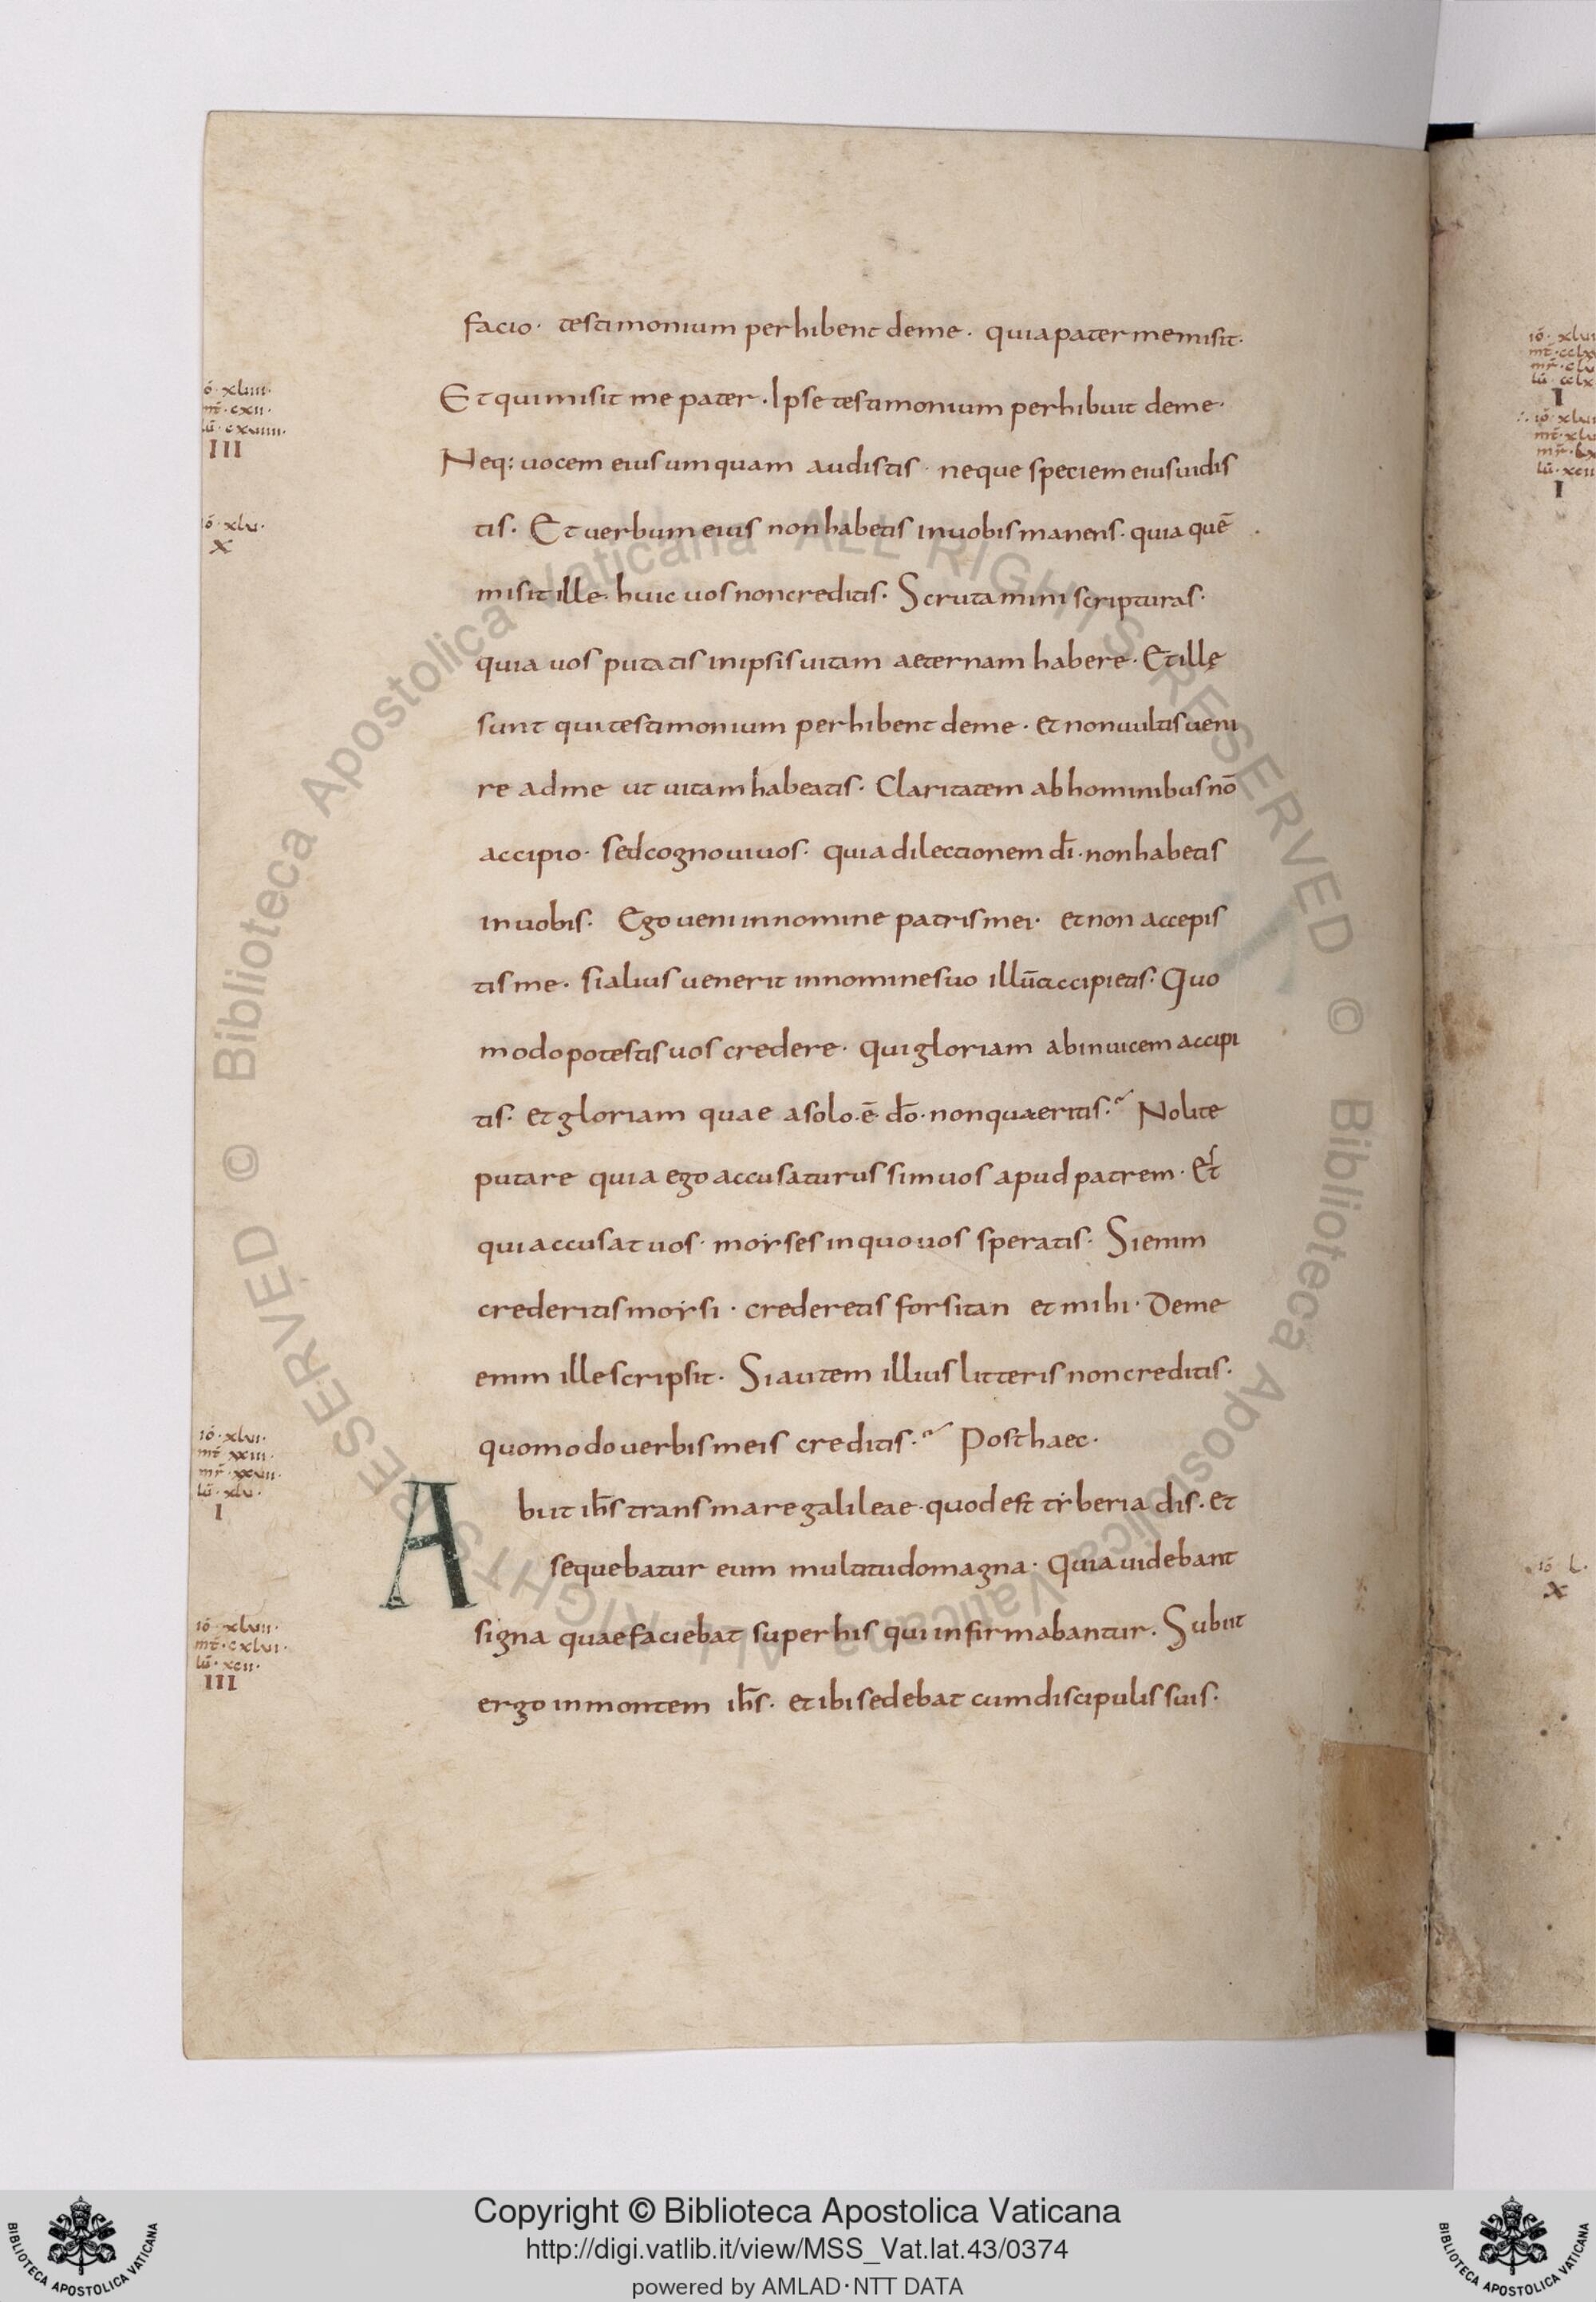 facio· testimonium perhibent deme· quiapatermemisit·
Et quimisit me pater·Ipse testimonium perhibuit deme·
Neq: uocem eius umquam audistis· neque speciem eiusuidis
tis· Et uerbum eius non habetis inuobis manens· quia quē
misit ille· huic uos noncreditis· Scrutamini scripturas·
quia uos putatis inipsis uitam aeternam habere· Et illę
sunt qui testimonium perhibent deme· et nonuultis ueni
re adme ut uitam habeatis· Claritatem ab hominibus nō
accipio· sed cognoui uos· quia dilectionem dī· non habetis
inuobis· Ego ueni innomine patris mei· et non accepis
tis me· si alius uenerit innomine suo illū accipietis· Quo
modo potestis uos credere· qui gloriam abinuicem accipi
tis· et gloriam quae asolo·ē· dō·non quaeritis·~ Nolite
putare quia ego accusaturus sim uos apud patrem· Est
qui accusat uos· moyses inquo uos speratis· Si enim
crederitis moysi· crederetis forsitan et mihi· Deme
enim ille scripsit· Si autem illius litteris non creditis·
quomodo uerbis meis creditis·~ Post haec·
Abiit ih̄s trans mare galileae· quod est tyberiadis· et
sequebatur eum multitudo magna· quia uidebant
signa quae faciebat super his qui infirmabantur· Subiit
ergo inmontem ih̄s· et ibi sedebat cum discipulis suis·
ō·xliiii·
mt̄·cxii·
lū·cxviiii·
III
iō·xlv·
X
iō·xlvi·
mt̄·xxiii·
mr̄·xxvii·
lū·xlv·
I
iō·xlvii·
mt̄·cxlvi·
lū·xcii·
III
iō·L·
X
© Biblioteca Apostolica Vaticana ALL RIGHTS RESERVED © Biblioteca Apostolica Vaticana ALL RIGHTS RESERVED
Copyright © Biblioteca Apostolica Vaticana
http://digi.vatlib.it/view/MSS_Vat.lat.43/0374
powered by AMLAD·NTT DATA
BIBLIOTECA APOSTOLICA VATICANA
BIBLIOTECA APOSTOLICA VATICANA